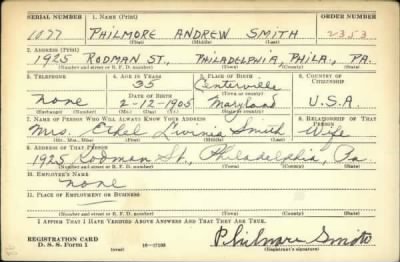 SERIAL NUMBER 1. NAME (Print) ORDER NUMBER
1077 PHILMORE ANDREW SMITH 2353
(First) (Middle) (Last)
2. ADDRESS (Print)
1925 RODMAN ST., PHILADELPHIA, PHILA., PA.
(Number and street or R. F. D. number) (Town) (County) (State)
3. TELEPHONE 4. AGE IN YEARS 5. PLACE OF BIRTH 6. COUNTRY OF CITIZENSHIP
35 Centerville
DATE OF BIRTH (Town or county)
none 2-12-1905 Maryland U.S.A.
(Exchange) (Number) (Mo.) (Day) (Yr.) (State or country)
7. NAME OF PERSON WHO WILL ALWAYS KNOW YOUR ADDRESS 8. RELATIONSHIP OF THAT PERSON
Mrs. Ethel Livinia Smith Wife
(Mr., Mrs., Miss) (First) (Middle) (Last)
9. ADDRESS OF THAT PERSON
1925 Rodman St., Philadelphia, Pa.
(Number and street or R. F. D. number) (Town) (County) (State)
10. EMPLOYER'S NAME
none
11. PLACE OF EMPLOYMENT OR BUSINESS
(Number and street or R. F. D. number) (Town) (County) (State)
I AFFIRM THAT I HAVE VERIFIED ABOVE ANSWERS AND THAT THEY ARE TRUE.
REGISTRATION CARD Philmore Smith
D. S. S. Form 1 (over) (Registrant's signature)